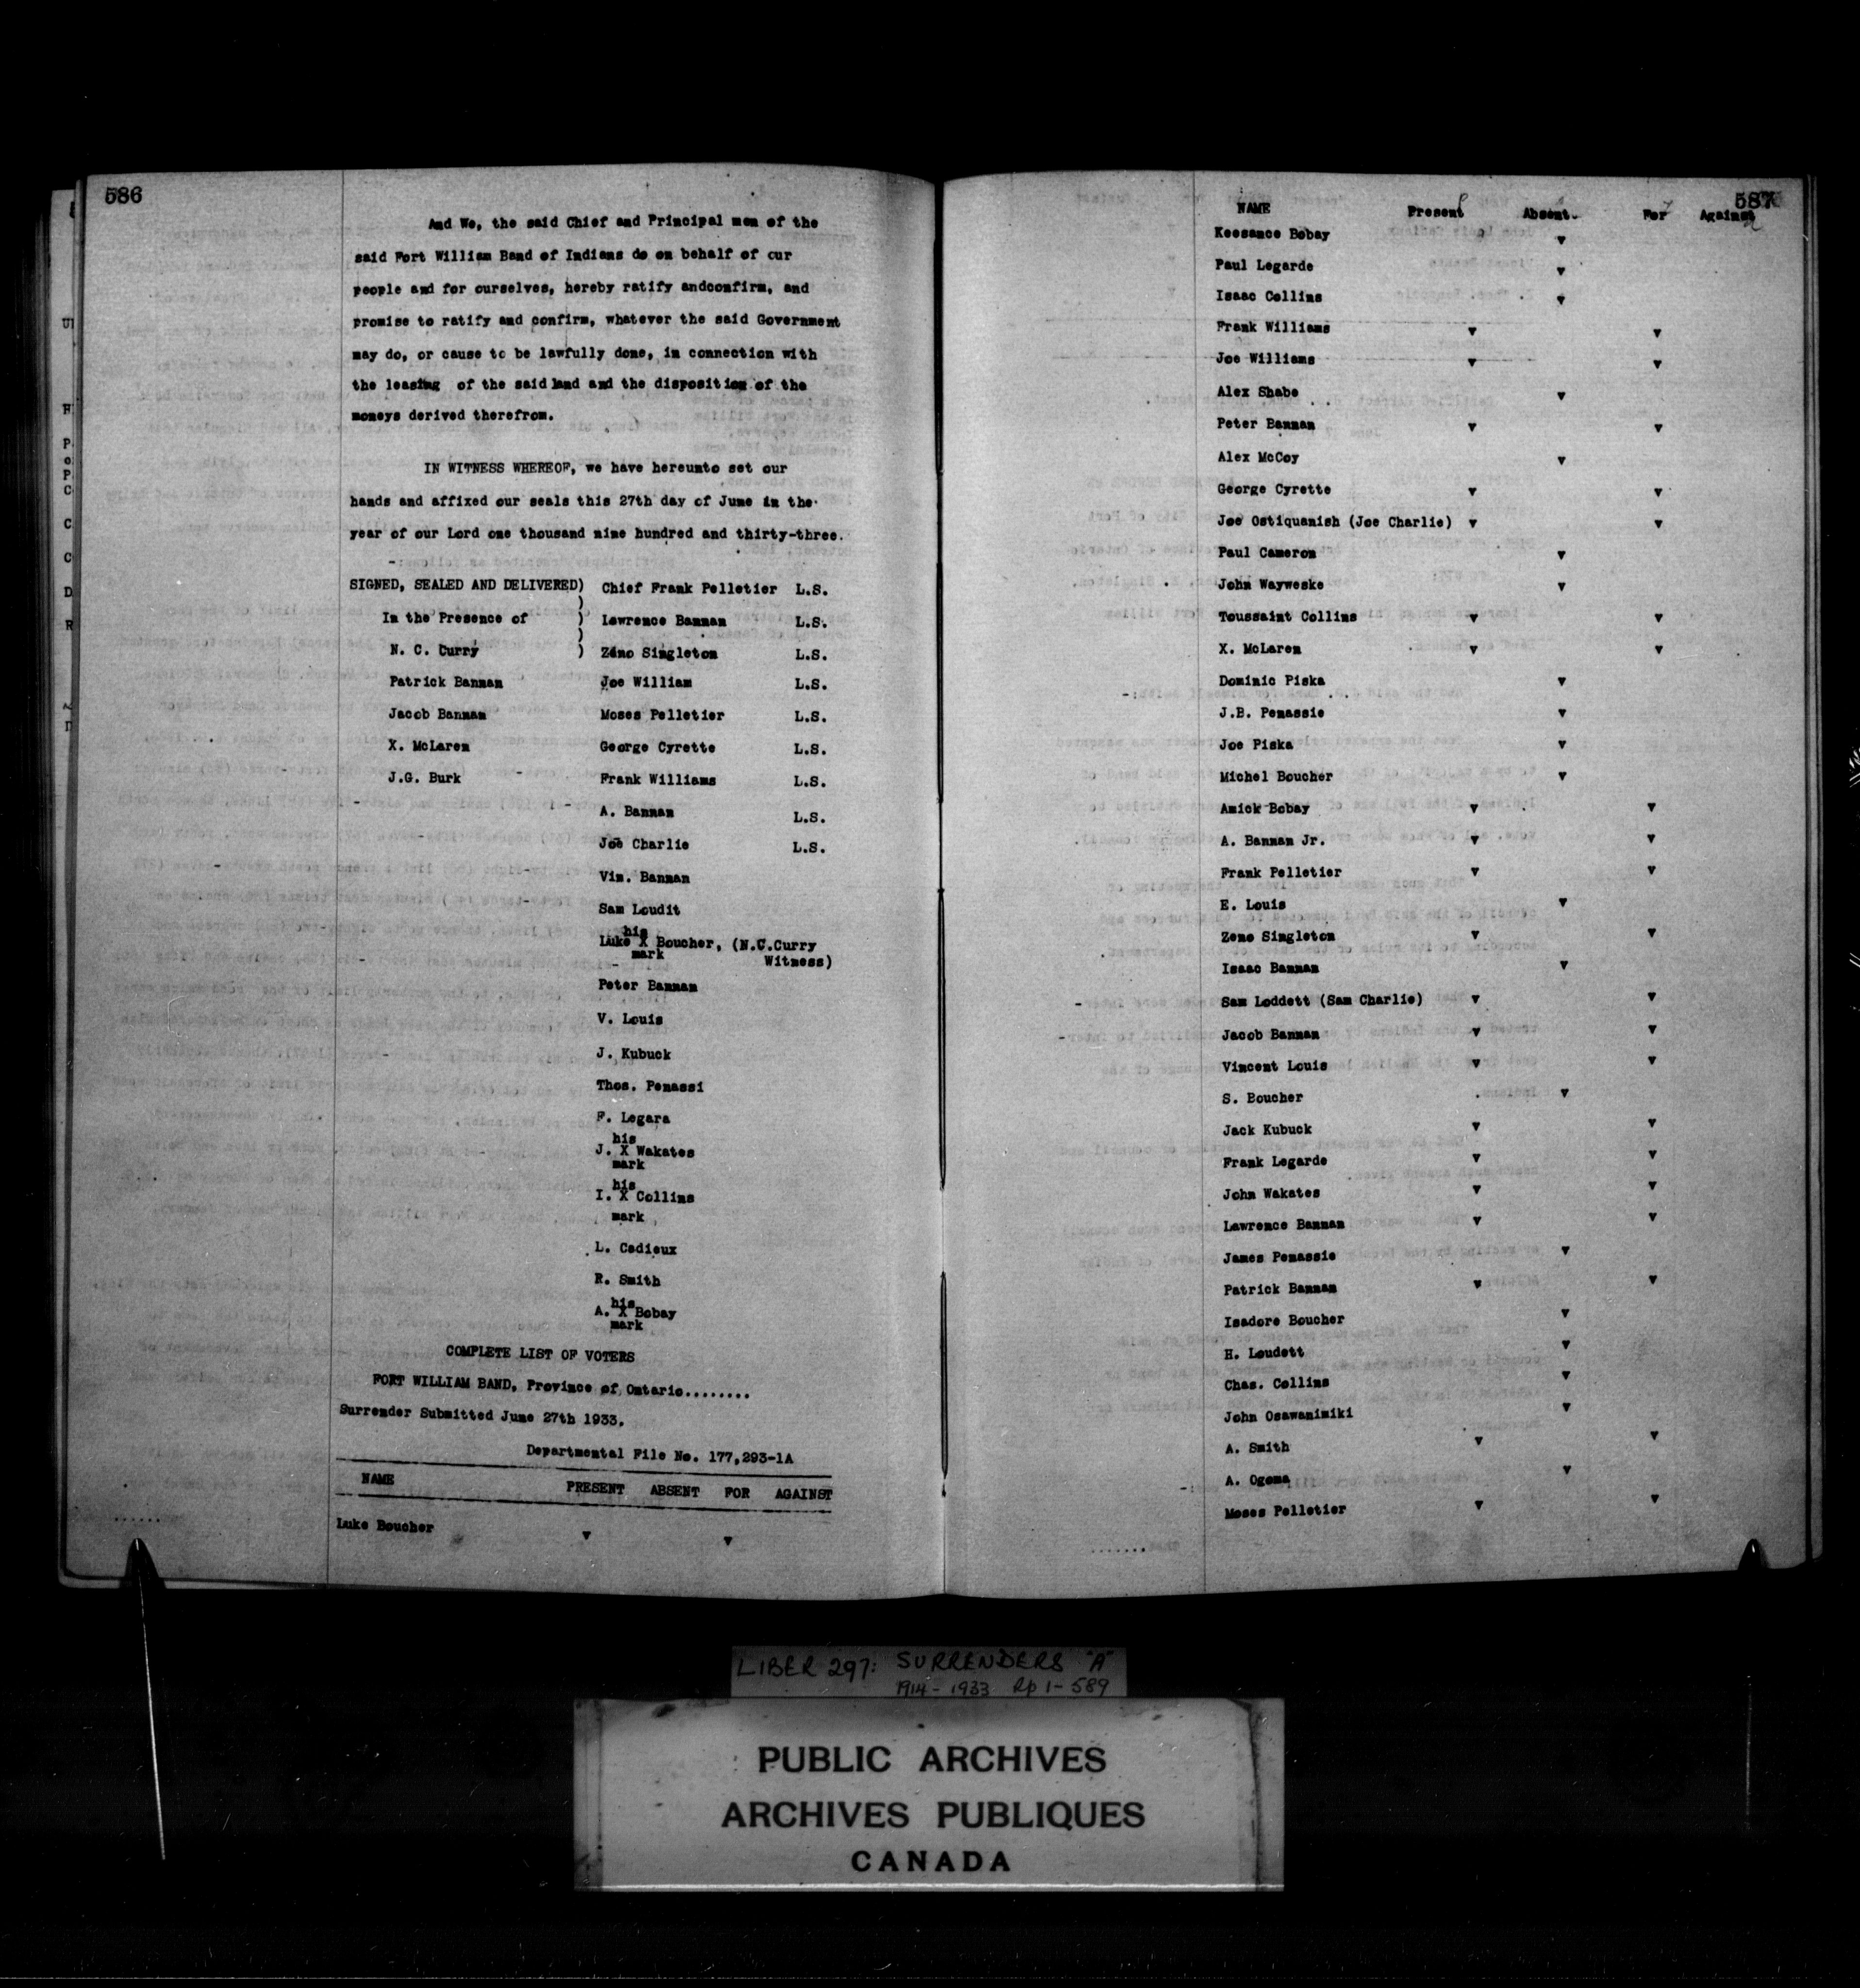 586
And We, the said Chief and Principal men of the
said Fort William Band of Indians do on behalf of our
people and for ourselves, hereby ratify andconfirm, and
promise to ratify and confirm, whatever the said Government
may do, or cause to be lawfully done, in connection with
the leasing of the said land and the disposition of the
moneys derived therefrom.
IN WITNESS WHEREOF, we have hereunto set our
hands and affixed our seals this 27th day of June in the
year of our Lord one thousand nine hundred and thirty-three.
SIGNED, SEALED AND DELIVERED) Chief Frank Pelletier L.S.
)
In the Presence of ) Lawrence Bannan L.S.
)
N. C. Curry ) Zeno Singleton L.S.
Patrick Bannan Joe William L.S.
Jacob Bannan Moses Pelletier L.S.
X. McLaren George Cyrette L.S.
J.G. Burk Frank Williams L.S.
A. Bannan L.S.
Joe Charlie L.S.
Vin. Bannan
Sam Loudit
his
Luke X Boucher, (N.C.Curry
mark Witness)
Peter Bannan
V. Louis
J. Kubuck
Thos. Penassi
F. Legara
his
J. X Wakates
mark
his
I. X Collins
mark
L. Cadieux
R. Smith
his
A. X Bobay
mark
COMPLETE LIST OF VOTERS
FORT WILLIAM BAND, Province of Ontario........
Surrender Submitted June 27th 1933.
Departmental File No. 177,293-1A
NAME PRESENT ABSENT FOR AGAINST
Luke Boucher v v
587
NAME Present Absent. For Against
Keesance Bobay v
Paul Legarde v
Isaac Collins v
Frank Williams v v
Joe Williams v v
Alex Shabe v
Peter Bannan v v
Alex McCoy v
George Cyrette v v
Joe Ostiquanish (Joe Charlie) v v
Paul Cameron v
John Wayweske v
Toussaint Collins v v
X. McLaren v v
Dominic Piska v
J.B. Penassie v
Joe Piska v
Michel Boucher v
Amick Bobay v v
A. Bannan Jr. v v
Frank Pelletier v v
E. Louis v
Zeno Singleton v v
Isaac Bannan v
Sam Loddett (Sam Charlie) v v
Jacob Bannan v v
Vincent Louis v v
S. Boucher v
Jack Kubuck v v
Frank Legarde v v
John Wakates v v
Lawrence Bannan v v
James Penassie v
Patrick Bannan v v
Isadore Boucher v
H. Loudett v
Chas. Collins v
John Osawanimiki v
A. Smith v v
A. Ogema v
Moses Pelletier v v
LIBER 297: SURRENDERS "A"
1914 - 1933 Rp 1-589
PUBLIC ARCHIVES
ARCHIVES PUBLIQUES
CANADA